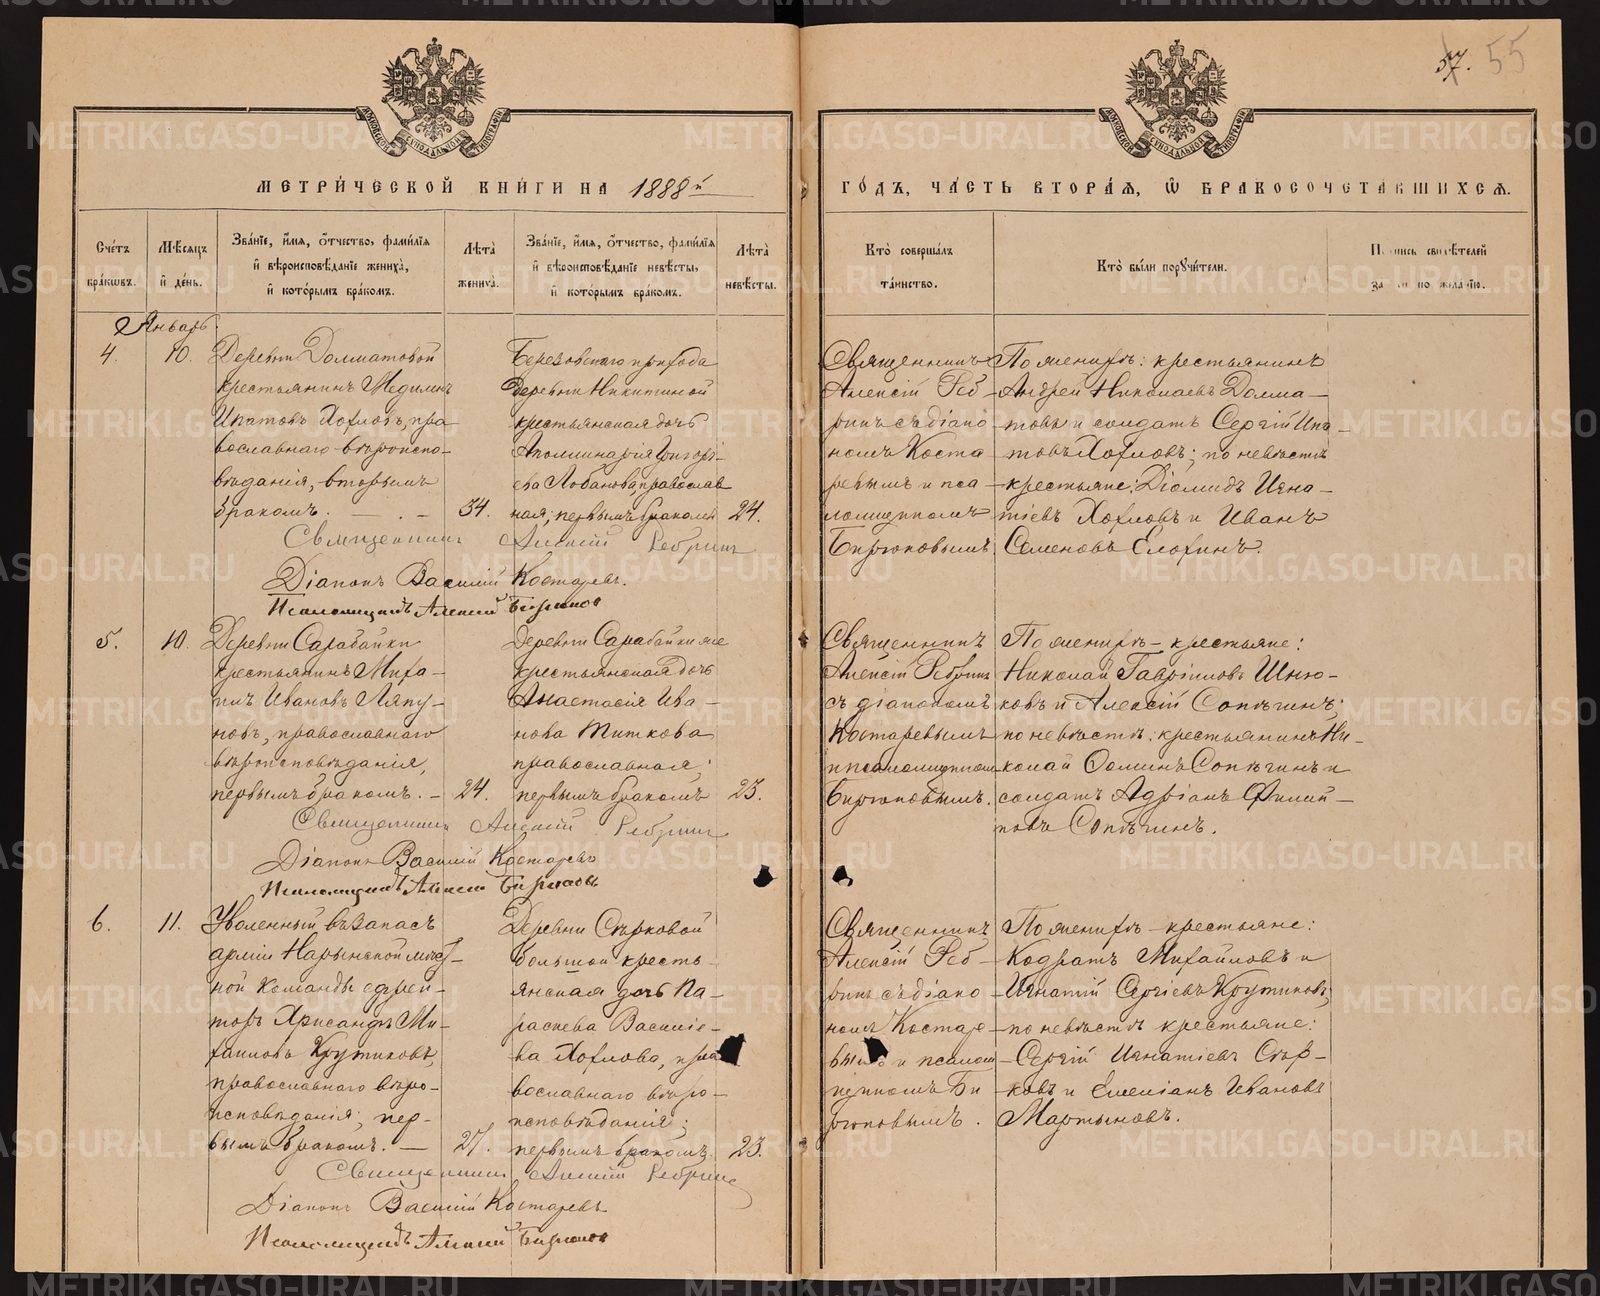 57. 55
МОСКОВСКОЙ СУНОДАЛЬНОЙ ТИПОГРАФІИ
МОСКОВСКОЙ СУНОДАЛЬНОЙ ТИПОГРАФІИ
МЕТРИ́ЧЕСКОЙ КНИ́ГИ НА 1888й
ГО́ДЪ, ЧА́СТЬ ВТОРА́Я, Ѽ БРАКОСОЧЕТА́ВШИХСѦ.
Сче́тъ бра́кѡвъ.
Мѣ́сяцъ и҆ де́нь.
Зва́нїе, и҆́мя, ѻ҆́тчество, фами́лїя и҆ вѣроисповѣ́данїе жениха̀, и҆ кото́рымъ бра́комъ.
Лѣ́та жениха̀.
Зва́нїе, и҆́мя, ѻ҆́тчество, фами́лїя и҆ вѣроисповѣ́данїе невѣ́сты, и҆ кото́рымъ бра́комъ.
Лѣ́та невѣ́сты.
Кто̀ соверша́лъ та́инство.
Кто̀ бы́ли порꙋчи́тели.
По́дпись свидѣ́телей за́писи по жела́нїю.
Январь.
4.
10.
Деревни Долматовой
крестьянинъ
Ипатовъ Хохловъ, пра
вославнаго вѣроиспо-
вѣданія, вторымъ
бракомъ. —
34.
Березовскаго прихода
деревни Никитиной
крестьянская дочь
Аполлинарія Григорь-
ева Лобанова православ
ная; первымъ бракомъ
24.
Священникъ
Алексій Реб-
ринъ съ діако
номъ Коста
ревымъ и пса
ломщикомъ
Бирюковымъ
По женихѣ: крестьянинъ
Андрей Николаевъ Долма-
товъ и солдатъ Сергій Ипа-
товъ Хохловъ; по невѣстѣ
крестьяне: Діомидъ Игна-
тіевъ Хохловъ и Иванъ
Семеновъ Елохинъ.
Священникъ Алексій Ребринъ
Діаконъ Василій Костаревъ.
Псаломщикъ Алексій Бирюковъ
5.
10.
Деревни Сарабайки
крестьянинъ Миха-
илъ Ивановъ Ляпу-
новъ, православнаго
вѣроисповѣданія,
первымъ бракомъ. —
24.
Деревни Сарабайки же
крестьянская дочь
Анастасія Ива-
нова Титкова
православная;
первымъ бракомъ
23.
Священникъ
Алексій Ребринъ
съ діакономъ
Костаревымъ
и псаломщикомъ
Бирюковымъ.
По женихѣ — крестьяне:
Николай Гавріиловъ Шню-
ковъ и Алексій Сопѣгинъ;
по невѣстѣ: крестьянинъ Ни-
колай Ѳоминъ Сопѣгинъ и
солдатъ Адріанъ Филип-
повъ Сопѣгинъ.
Священникъ Алексій Ребринъ
Діаконъ Василій Костаревъ
Псаломщикъ Алексій Бирюковъ
6.
11.
Уволенный въ запасъ
арміи Нарынской мѣст-
ной команды ефрей-
торъ Хрисанфъ Ми-
хаиловъ Крутиковъ,
православнаго вѣро-
исповѣданія; пер-
вымъ бракомъ. —
27.
Деревни Сырковой
большой кресть-
янская дочь Па-
раскева Василіе-
ва Хохлова, пра
вославнаго вѣро-
исповѣданія;
первымъ бракомъ.
23.
Священникъ
Алексій Реб-
ринъ съ діако
номъ Костаре-
вымъ и псалом
щикомъ Би
рюковымъ.
По женихѣ — крестьяне:
Кодратъ Михайловъ и
Игнатій Сергіевъ Крутиковы;
по невѣстѣ крестьяне:
Сергій Игнатіевъ Сыр-
ковъ и Емеліанъ Ивановъ
Мартыновъ.
Священникъ Алексій Ребринъ
Діаконъ Василій Костаревъ
Псаломщикъ Алексій Бирюковъ
METRIKI.GASO-URAL.RU